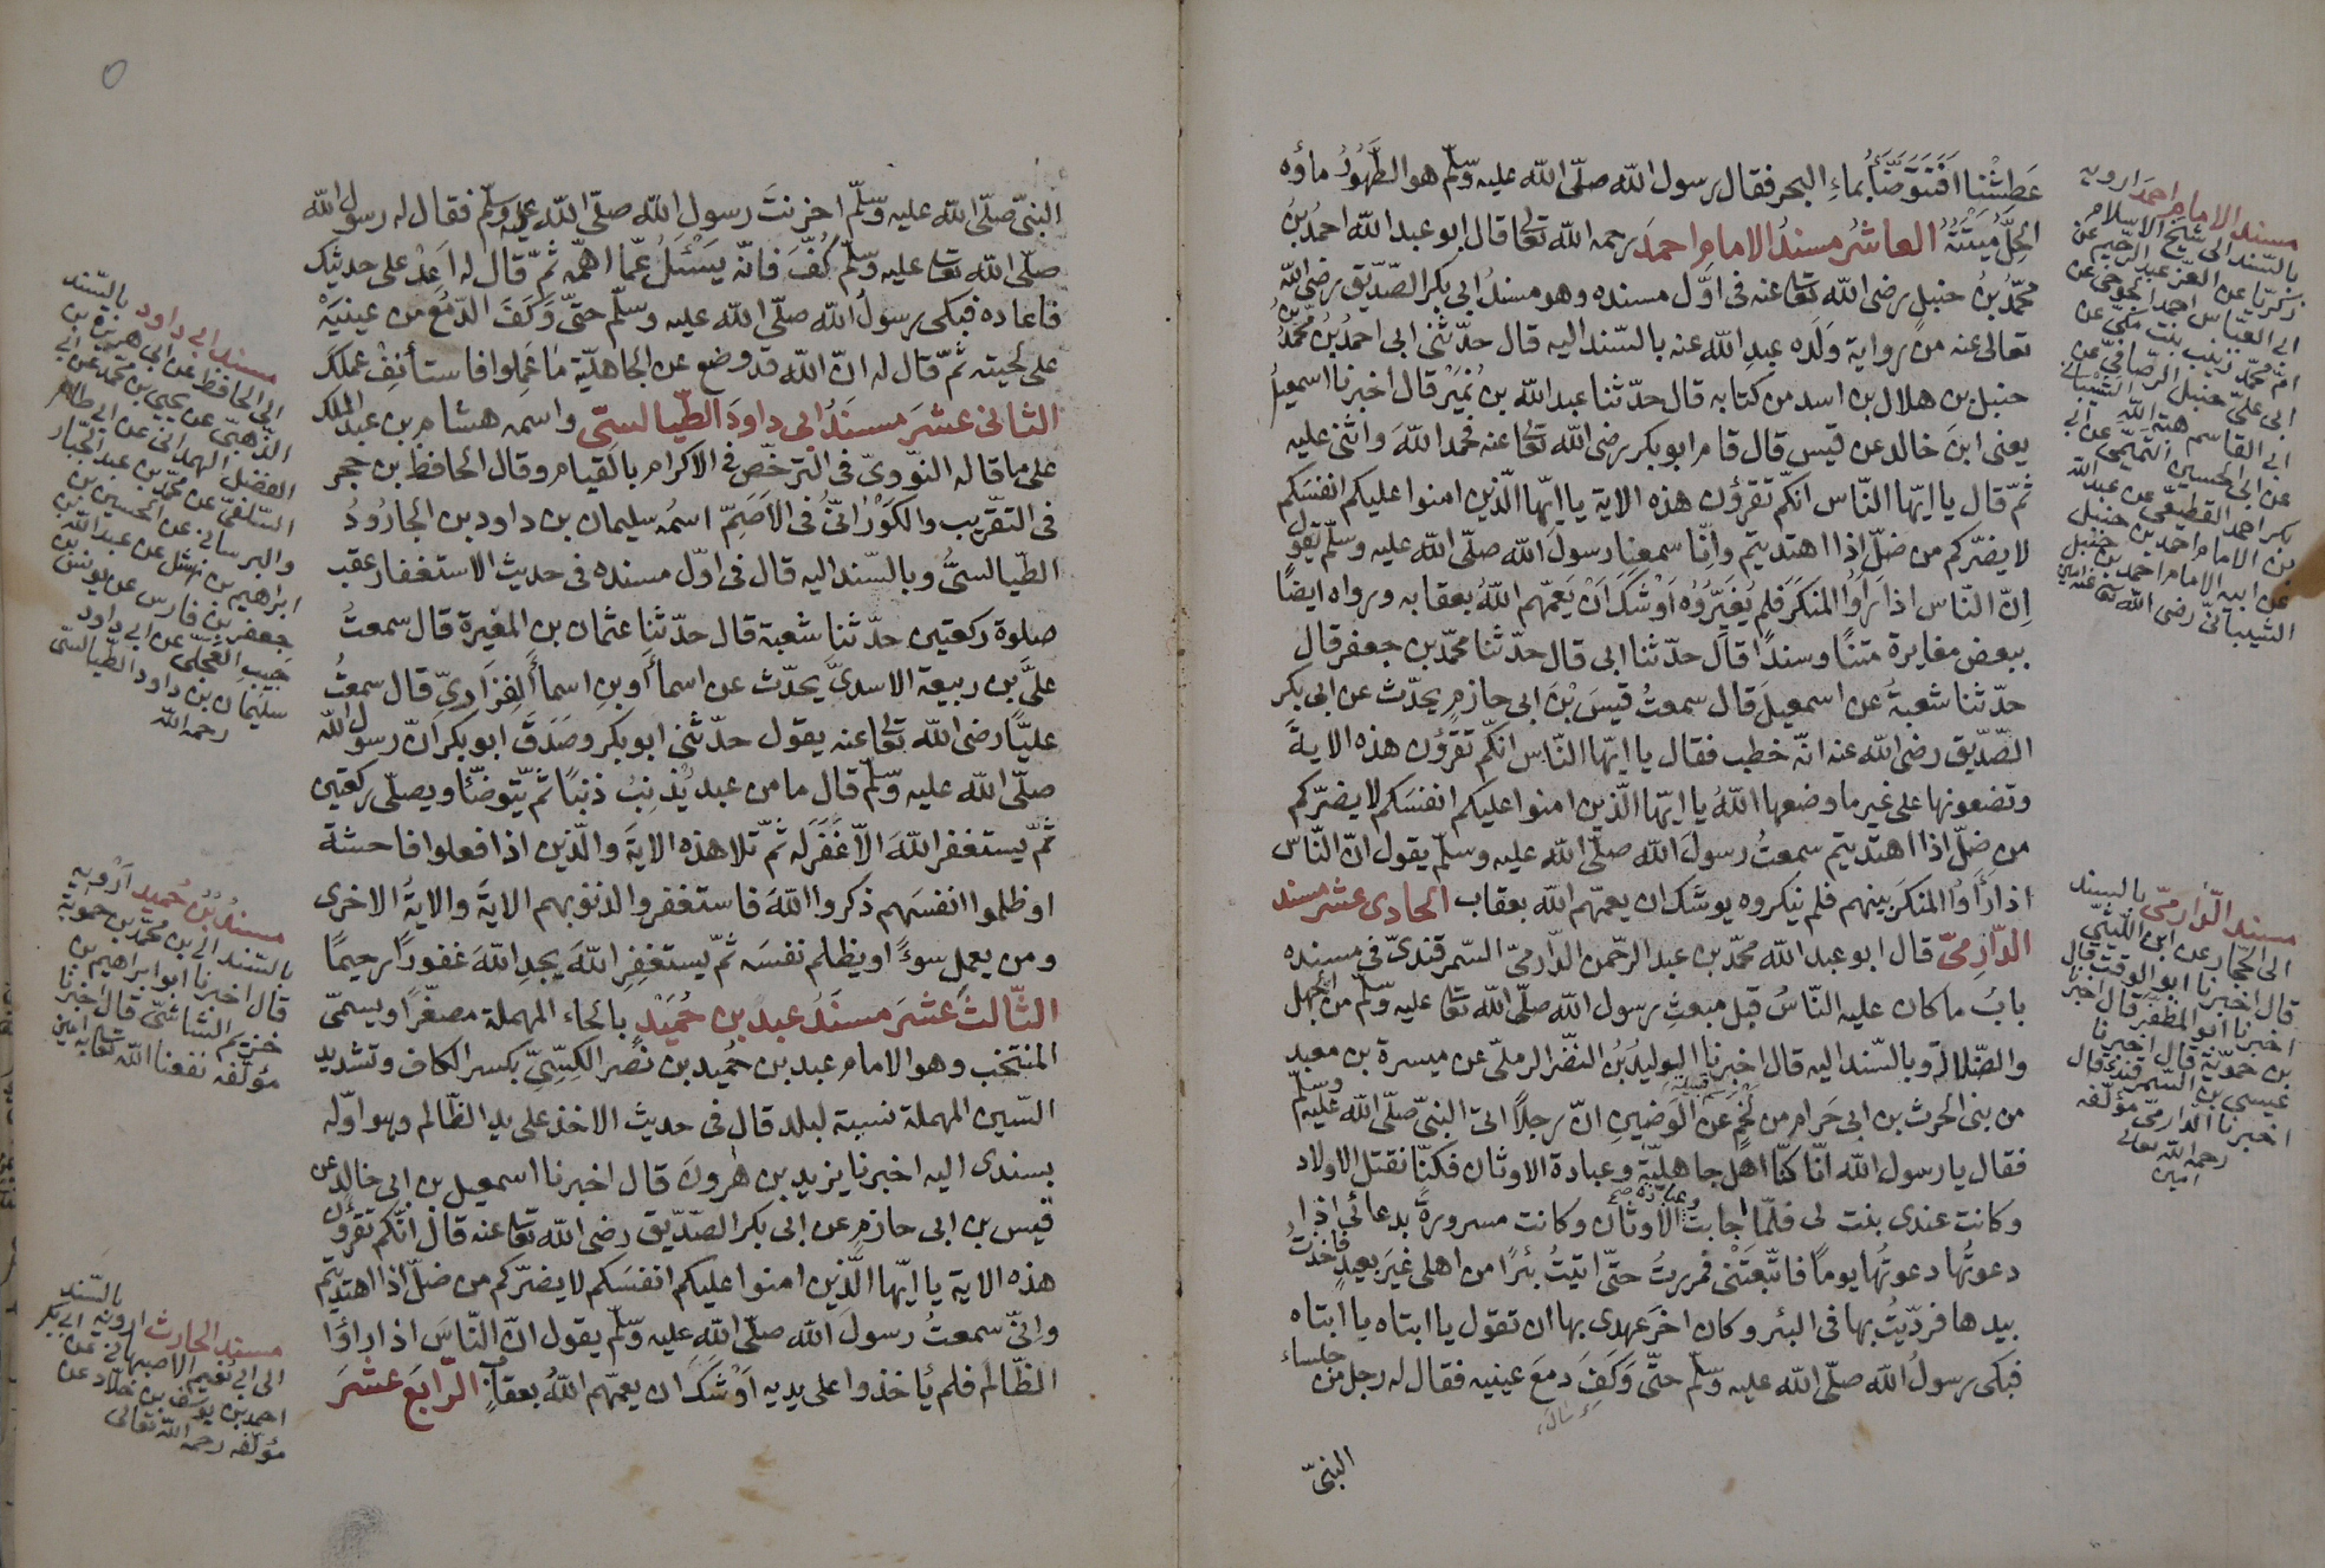 عَطِشْنا اَفَنَتَوَضَّأُ بماءِ البحر فقال رسول اللّه صلّى اللّه عليه وسلّم هو الطَّهُورُ ماؤه
الحِلُّ مَيْتَتُهُ العاشرُ مسندُ الامام احمدَ رحمه اللّه تعالى قال ابو عبد اللّه احمدُ بنُ
محمّدُ بنُ حنبلٍ رضى اللّه تعالى عنه فى اوّل مسنده وهو مسندُ ابى بكر الصّدّيق رضى اللّه
تعالى عنه من رواية وَلَدِه عبدِ اللّه عنه بالسّند اليه قال حدّثنى ابى احمدُ بنُ محمّدُ بن
حنبل بن هلال بن اسد من كتابه قال حدّثنا عبد اللّه بن نُمَيْر قال اخبرنا اسمعيلُ
يعنى ابنَ خالد عن قيس قال قام ابو بكر رضى اللّه تعالى عنه فحمد اللّهَ واثنى عليه
ثمّ قال يا ايّها النّاس انّكم تقرؤن هذه الاية يا ايّها الّذين امنوا عليكم انفسَكم
لا يضرّكم من ضلّ اذا اهتديتم وانّا سمعنا رسولَ اللّه صلّى اللّه عليه وسلّم يقول
اِنّ النّاس اذا رَاَوُا المنكَرَ فلم يُغَيّرُوُه اَوْشَكَ اَنْ يَعَمّهم اللّهُ بعقابه ورواه ايضًا
ببعض مغايرة متنًا وسندًا قال حدّثنا ابى قال حدّثنا محمّد بن جعفر قال
حدّثنا شعبةُ عن اسمعيلَ قال سمعتُ قيسَ بْنَ ابى حازمٍ يحدّث عن ابى بكر
الصّدّيق رضى اللّه عنه انّه خطب فقال يا ايّها النّاس انّكم تقرؤن هذه الايةَ
وتضعونها على غير ما وضعها اللّهُ يا ايّها الّذين امنوا عليكم انفسَكم لا يضرّكم
من ضلّ اذا اهتديتم سمعتُ رسولَ اللّه صلّى اللّه عليه وسلّم يقول انّ النّاس
اذا رأوُا المنكَرَ بينهم فلم ينكروه يوشَك ان يعمّهم اللّه بعقاب الحادى عشر مسند
الدّارِمىّ قال ابو عبد اللّه محمّد بن عبد الرّحمن الدّارمىّ السّمرقندىّ فى مسنده
بابُ ما كان عليه النّاسُ قبل مبعثِ رسول اللّه صلّى اللّه تعالى عليه وسلّم من الجهل
والضّلالة وبالسّند اليه قال اخبرنا الوليدُ بنُ النّضر الرملىّ عن ميسرة بن معبد
من بنى الحرث بن ابى حَرام من لَخْمٍ عن الوَضينِ انّ رجلاً اتى النبىّ صلّى اللّه عليه وسلّم
فقال يا رسول اللّه انّا كنّا اهلَ جاهليّةٍ وعبادة الاوثان فكنّا نقتل الاولاد
وكانت عندى بنت لى فلمّا اجابت وعبادة الاوثان وكانت مسرورةً بدعائى اذا
دعوتُها دعوتُها يومًا فاتّبعَتْنى فمررتُ حتّى اتيتُ بئرًا من اهلى غيرَ بعيدٍ فاخذتُ
بيدها فردّيتُ بها فى البئر وكان اخرَ عهدى بها ان تقول يا ابتاه يا ابتاه
فبكى رسولُ اللّه صلّى اللّه عليه وسلّم حتّى وَكَفَ دمعَ عينيه فقال له رجل من جلساء
النبىّ
مسند الامام احمدَ ارويه
بالسّند الى شيخ الاسلام
زكريّا عن العزّ عبد الرّحيم عن
ابى العبّاس احمد الجوخى عن
امّ محمّد زينب بنت مكّىّ عن
ابى علىّ حنبل الرّصافىّ عن
ابى القاسم هبة اللّه الشّيبانى
عن ابى الحسين التّميمى عن ابى
بكر احمد القطيعىّ عن عبد اللّه
بن الامام احمد بن حنبل
عن ابيه الامام احمد بن حنبل
الشّيبانىّ رضى اللّه تعالى عنه امين
مسند الدّارمىّ بالسند
الى الحجّار عن ابن اللّتّىّ
قال اخبرنا ابو الوقت قال
اخبرنا ابو المظفّر قال اخبرنا
بن حمّويّة قال اخبرنا
عيسى بن السّمرقندى قال
اخبرنا الدّارمىّ مؤلّفه
رحمه اللّه تعالى
امين
النبىّ صلّى اللّه عليه وسلّم احزنتَ رسولَ اللّه صلّى اللّه عليه وسلّم فقال له رسول اللّه
صلّى اللّه تعالى عليه وسلّم كُفَّ فانّه يَسْئَلُ عمّا اهمّه ثمّ قال له اَعِدْ علىّ حديثك
فاعاده فبكى رسولُ اللّه صلّى اللّه عليه وسلّم حتّى وَكَفَ الدّمعُ من عينَيْه
على لحيته ثمّ قال له انّ اللّه قد وضع عن الجاهليّة ما عَمِلوا فاستأنِفْ عملَك
الثّانى عشرَ مسنَدُ ابى داودَ الطّيالسىّ واسمه هشام بن عبد الملك
على ما قاله النّووىّ فى التّرخّص فى الاكرام بالقيام وقال الحافظ بن حجر
فى التّقريب والكَوْرانىُّ فى الاَصَحِّ اسمُه سليمان بن داود بن الجارُودُ
الطّيالسىُّ وبالسّند اليه قال فى اوّل مسنده فى حديث الاستغفار عقب
صلوة ركعتين حدّثنا شعبة قال حدّثنا عثمان بن المغيرة قال سمعتُ
علىَّ بن ربيعة الاسدىّ يحدّث عن اسمأَ اَو بنِ اسمأَ الفزارىّ قال سمعتُ
عليًّا رضى اللّه تعالى عنه يقول حدّثنى ابو بكر وصَدَقَ ابو بكر انّ رسول اللّه
صلّى اللّه عليه وسلّم قال ما من عبد يُذنِبُ ذنبًا ثمّ يتوضّئا ويصلّى ركعتين
ثمّ يستغفر اللّهَ الاّ غَفَرَ له ثمّ تلا هذه الايةَ والّذين اذا فعلوا فاحشة
او ظلموا انفسَهم ذكروا اللّهَ فاستغفروا لذنوبهم الايةَ والايةُ الاخرى
ومن يعمل سوءً او يظلم نفسَه ثمّ يستغفِرِ اللّهَ يجدِ اللّهَ غفورًا رحيمًا
الثّالثَ عشَرَ مسنَدُ عبد بن حُمَيْدٍ بالحاء المهملة مصغّرًا ويسمّى
المنتخب وهو الامام عبد بن حُمَيد بن نصر الكِسِّىِّ بكسر الكاف وتشديد
السّين المهملة نسبة لبلد قال فى حديث الاخذ على يد الظّالم وهو اوّله
بسندى اليه اخبرنا يزيد بن هٰرونَ قال اخبرنا اسمعيل بن ابى خالد عن
قيس بن ابى حازمٍ عن ابى بكر الصّدّيق رضى اللّه تعالى عنه قال انّكم تقرؤن
هذه الاية يا ايّها الّذين امنوا عليكم انفسَكم لا يضرّكم من ضلّ اذا اهتديتم
وانّى سمعتُ رسولَ اللّه صلّى اللّه عليه وسلّم يقول انّ النّاسَ اذا راوُا
الظّالمَ فلم يأخذوا على يديه اَوْشَكَ ان يعمّهم اللّهُ بعقابٍ الرّابعَ عشرَ
مسند ابى داود بالسّند
الى الحافظ عن ابى هريرة بن
الذّهبىّ عن يحيى بن محمّد عن ابى
الفضل الهمدانى عن ابى طاهر
السّلفىّ عن محمّد بن عبد الجبّار
والبرسانى عن الحسين بن
ابراهيم بن نهشل عن عبد اللّه بن
جعفر بن فارس عن يونس بن
حبيب العجلىّ عن ابى داود
سليمان بن داود الطّيالسىّ
رحمه اللّه
مسندُ بْنُ حُميد اَرْويه
بالسّند الى بن محمّد بن حمويّة
قال اخبرنا ابو ابراهيم بن
خزيم الشّاشىّ قال اخبرنا
مؤلّفه نفعنا اللّه تعالى به امين
مسند الحارث ارويه بالسّند
الى ابى نُعَيم الاصبهانى عن ابى بكر
احمد بن يوسف بن خلاّد عن
مؤلّفه رحمه اللّه تعالى